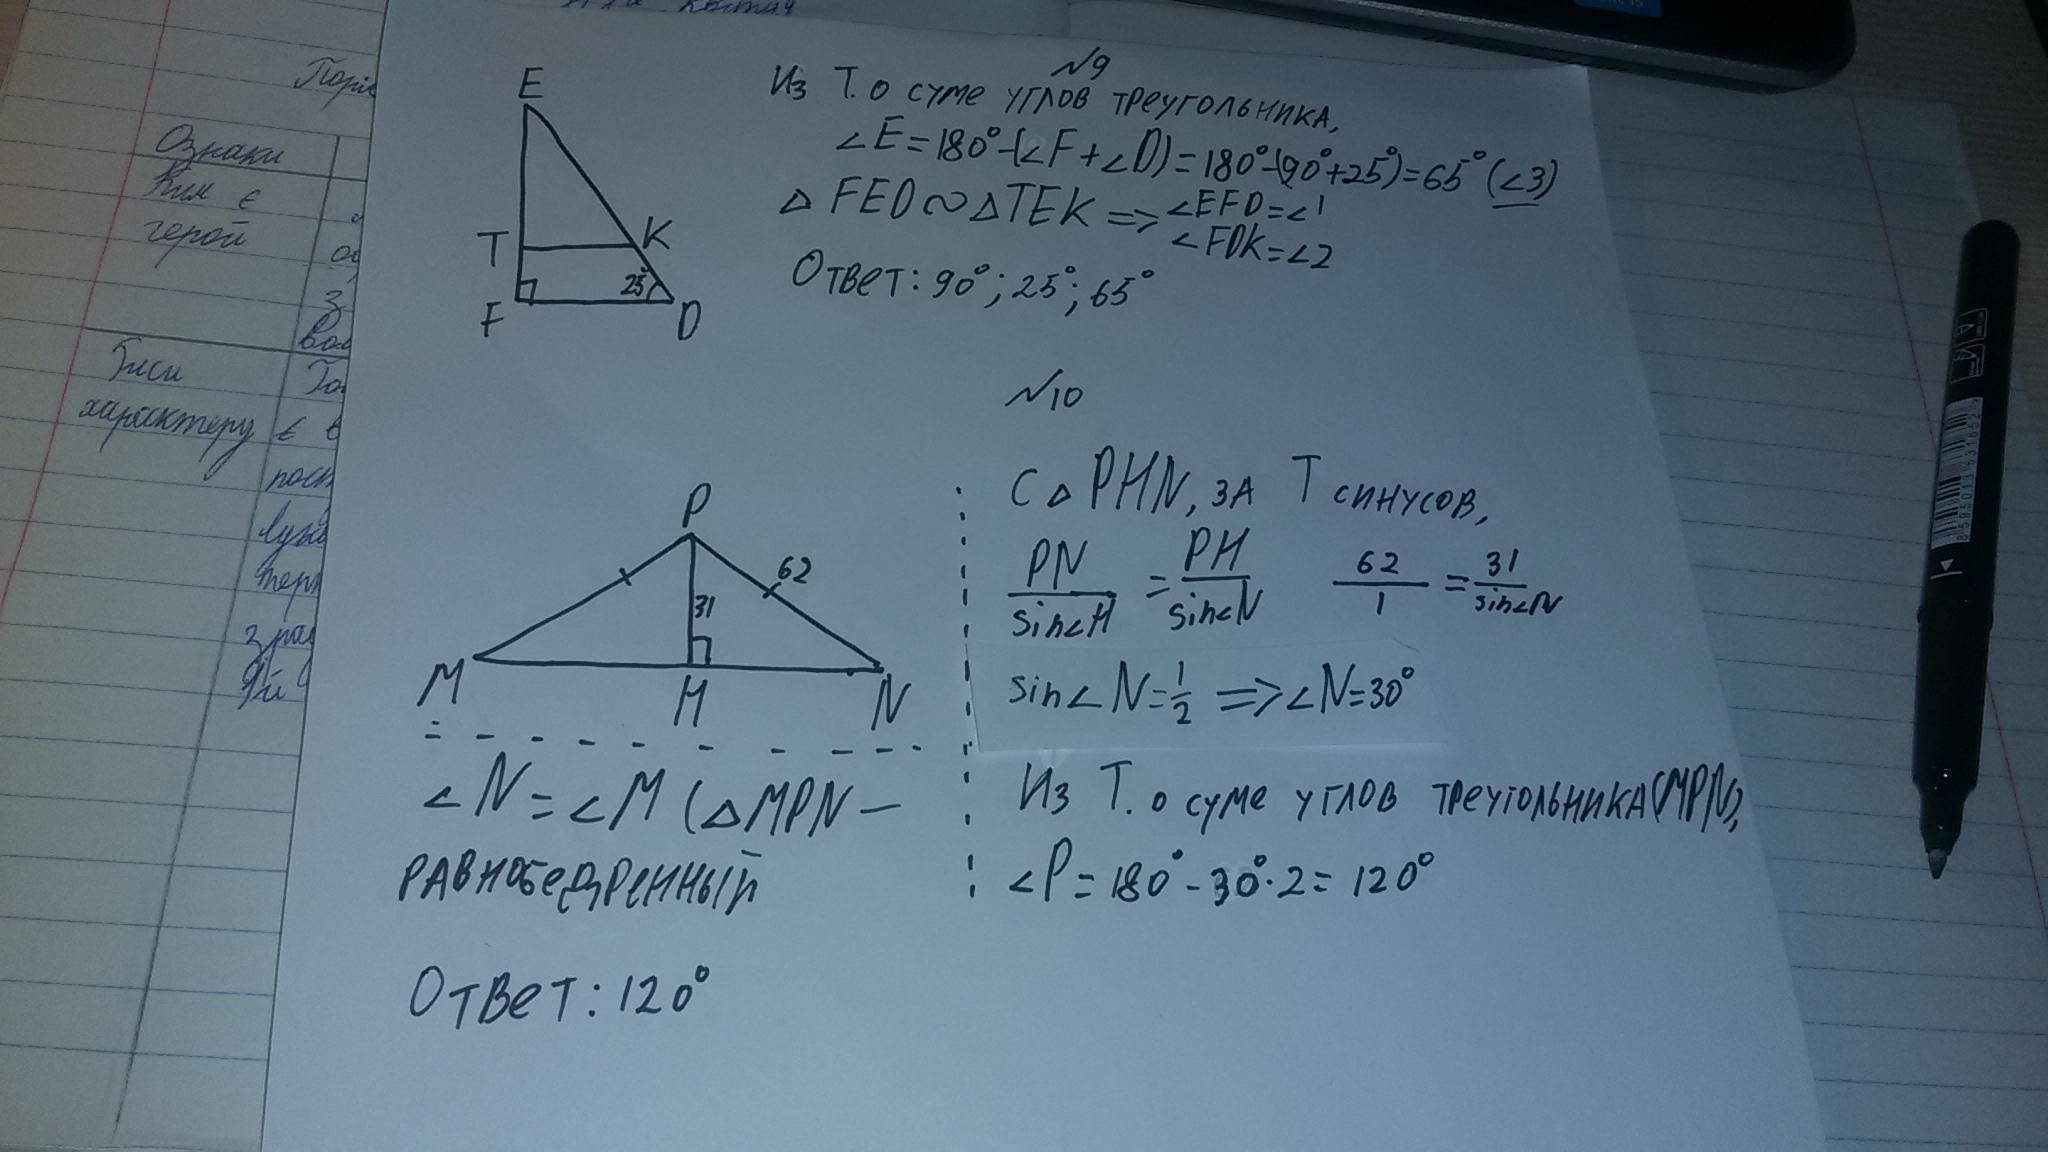 №9
Из Т. о суме углов треугольника,
∠E = 180° - (∠F + ∠D) = 180° - (90° + 25°) = 65° (∠3)
△ FED ∾ △ TEK => ∠EFD = ∠1
∠FDK = ∠2
Ответ: 90°; 25°; 65°
E
T
K
25°
F
D
№10
P
62
31
M
H
N
С △ PHN, за Т синусов,
PN/sin∠H = PH/sin∠N 62/1 = 31/sin∠N
sin∠N = 1/2 => ∠N = 30°
∠N = ∠M (△MPN –
равнобедренный
Из Т. о суме углов треугольника (MPN),
∠P = 180° - 30° · 2 = 120°
Ответ: 120°
Ознаки
Ким є
герой
Риси
характеру
є в
8595013931652